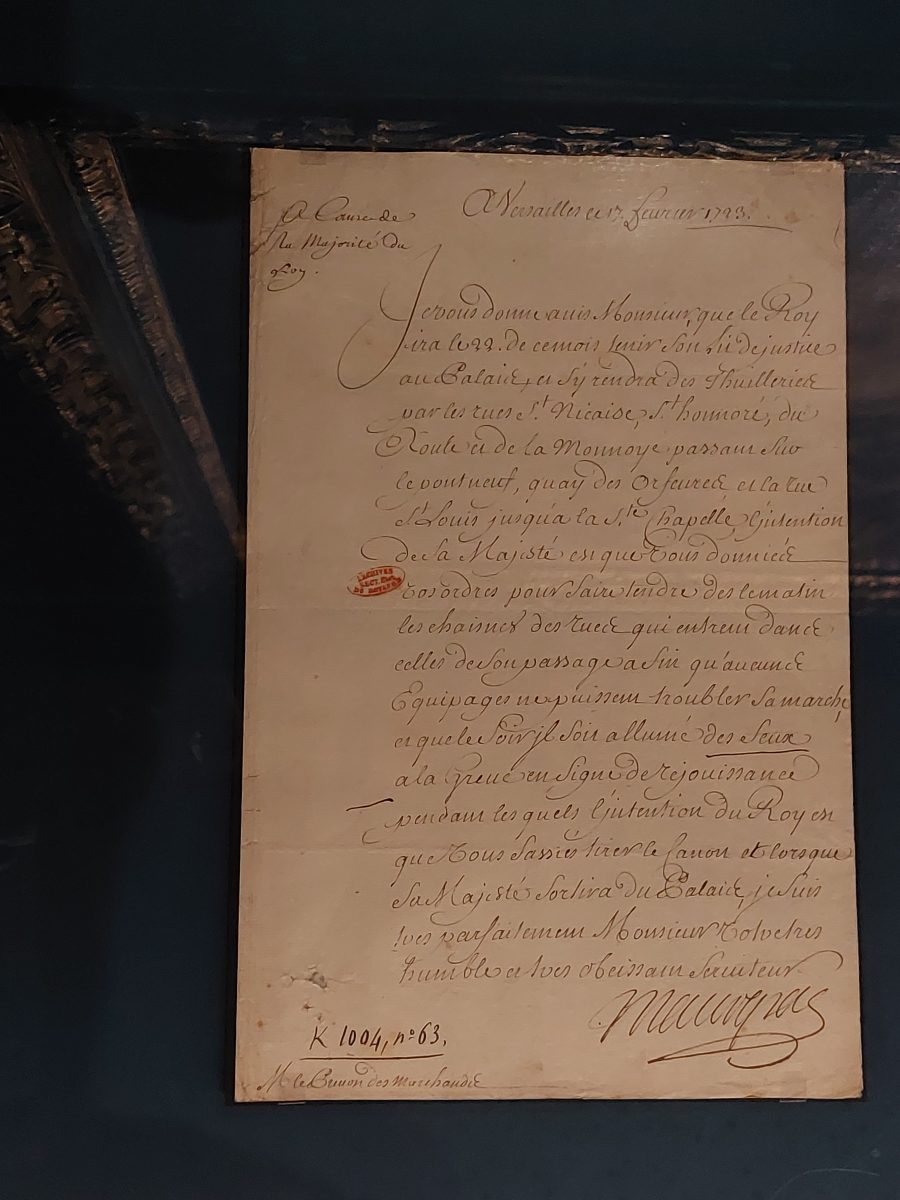 A Cause de
la Majorité du
Roy.
A Versailles ce 17. fevrier 1723.
Je vous donne avis Monsieur, que le Roy
ira le 22. de ce mois tenir son lit de justice
au Palais, et s'y rendra des Thuilleries
par les rues St. Nicaise, St. honnoré, du
Roule et de la Monnoye passant sur
le pont neuf, quay des Orfeures et la rue
St. Louis jusqu'a la Ste. Chapelle, l'jntention
de Sa Majesté est que vous donniés
vos ordres pour faire tendre des le matin
les chaisnes des rues qui entrent dans
celles de son passage afin qu'aucuns
Equipages ne puissent troubler sa marche,
et que le soir jl soit allumé des feux
a la Greve en signe de rejouissance
pendant les quels l'jntention du Roy est
que vous fassiés tirer le Canon et lorsque
Sa Majesté sortira du Palais, je suis
tres parfaitement Monsieur votre tres
humble et tres obeissant serviteur.
Maurepas
ARCHIVES
SECT. HIST.
DU ROYAUME
K 1004, n° 63.
M. le Prevost des Marchands